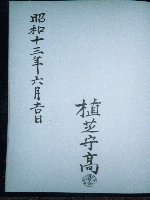 昭和十三年六月吉日
植芝守高